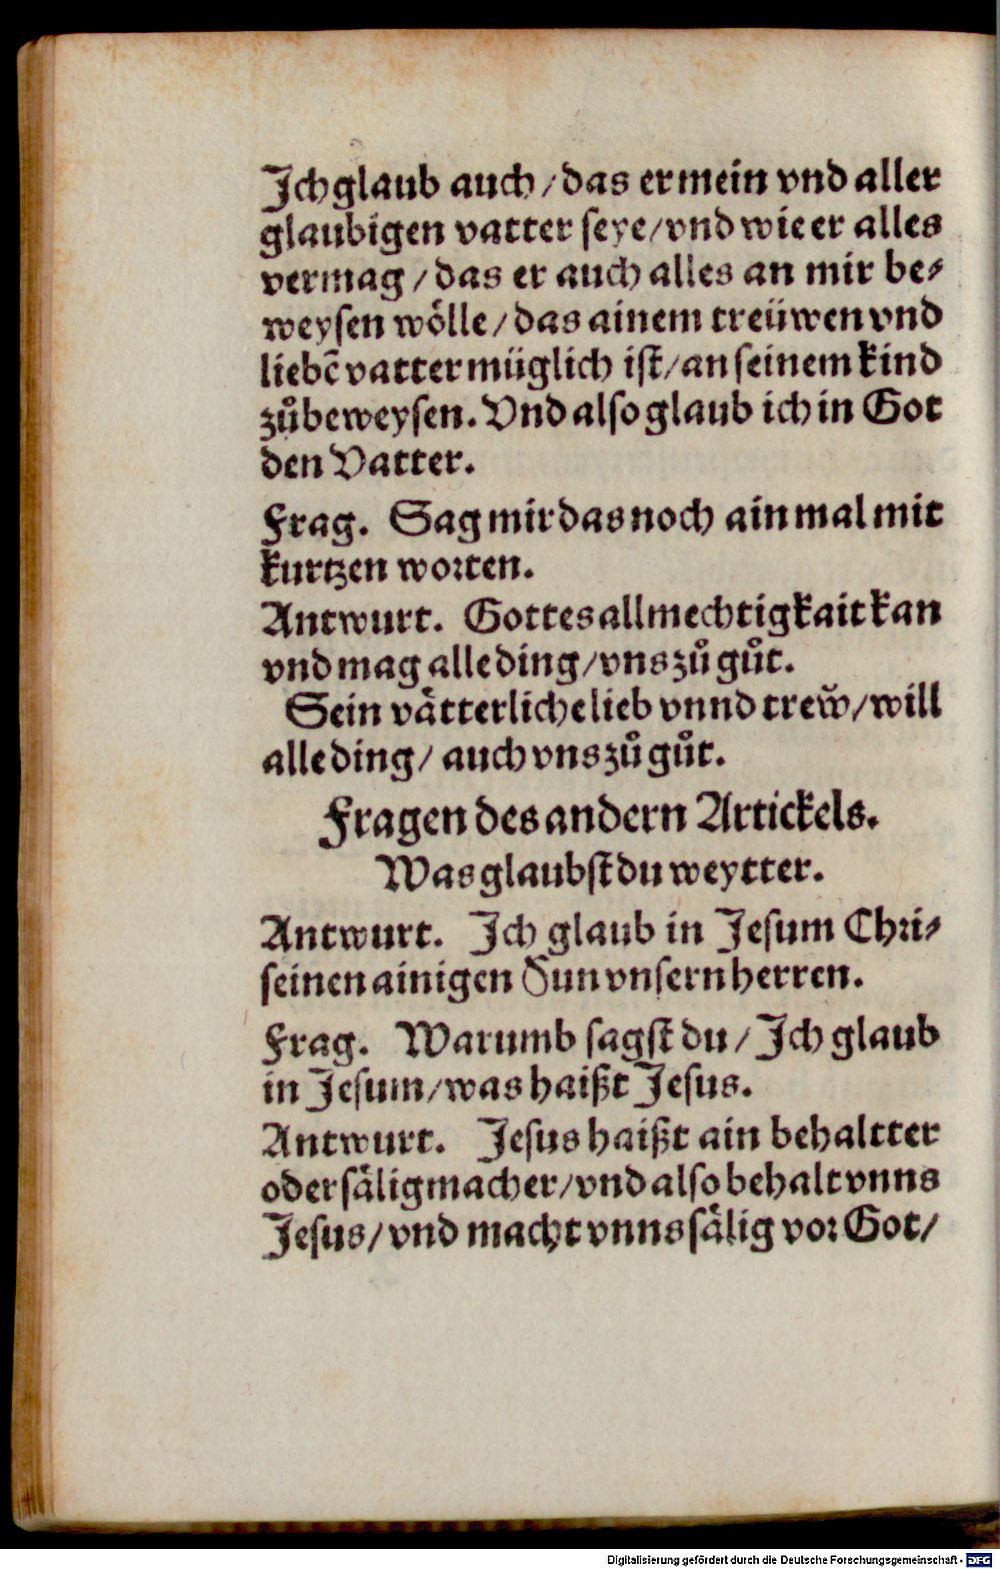 Ich glaub auch / das er mein vnd aller
glaubigen vatter seye / vnd wie er alles
vermag / das er auch alles an mir be⸗
weysen wölle / das ainem treüwen vnd
liebẽ vatter müglich ist / an seinem kind
zůbeweysen. Vnd also glaub ich in Got
den Vatter.
Frag. Sag mir das noch ain mal mit
kurtzen worten.
Antwurt. Gottes allmechtigkait kan
vnd mag alle ding / vns zů gůt.
Sein vätterliche lieb vnnd trew̃ / will
alle ding / auch vns zů gůt.
Fragen des andern Artickels.
Was glaubst du weytter.
Antwurt. Ich glaub in Jesum Chri⸗
seinen ainigen Sun vnsern herren.
Frag. Warumb sagst du / Ich glaub
in Jesum / was haißt Jesus.
Antwurt. Jesus haißt ain behaltter
oder säligmacher / vnd also behalt vnns
Jesus / vnd macht vnns sälig vor Got /
Digitalisierung gefördert durch die Deutsche Forschungsgemeinschaft - DFG